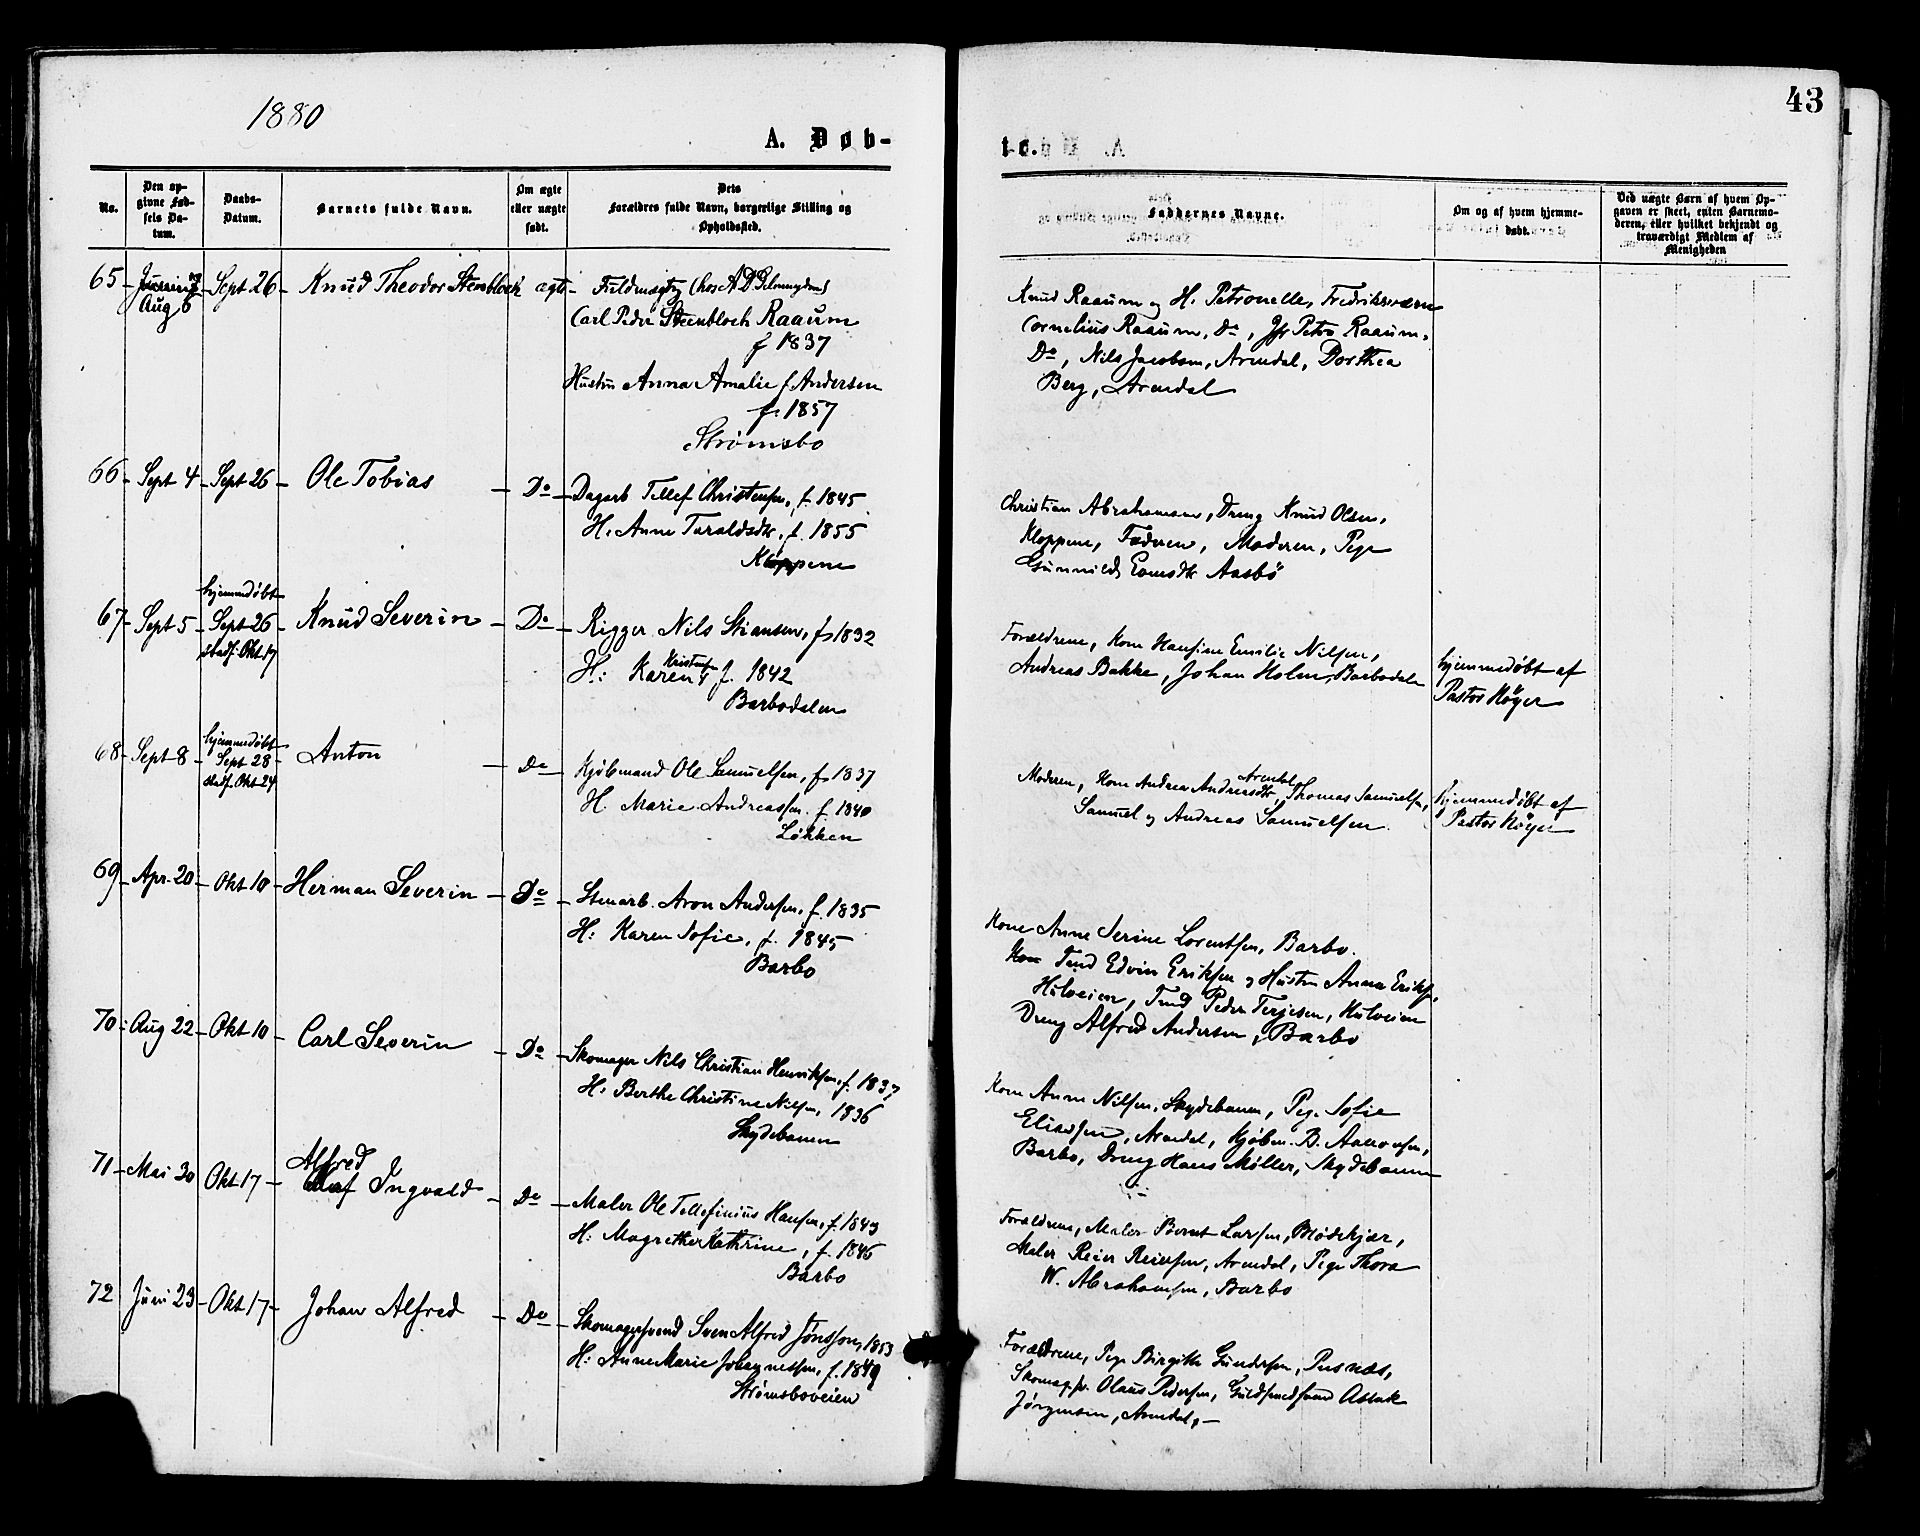 1880
43
A. Døb-
te.
No.
Den op-
givne Fød-
sels Da-
tum.
Daabs-
Datum.
Barnets fulde Navn.
Om ægte
eller uægte
født.
Dets
Forældres fulde Navn, borgerlige Stilling og
Opholdssted.
Faddernes Navne.
Om og af hvem hjemme-
døbt.
Ved uægte Barn af hvem Op-
gaven er skeet, enten Barnemo-
deren, eller hvilket bekjendt og
troværdigt Medlem af
Menigheden
65 Aug 6 Sept 26 Knud Theodor Stenbloch ægte
Carl Peder Steenbloch Raaum
f 1837
Hustru Anna Amalie f. Andersen
f. 1857
Strømsbo
Knud Raaum og H. Petronelle, Fredriksværn
Cornelius Raaum, Do, Jfr Petra Raaum,
Do, Nils Jacobsen, Arendal, Dorthea
Berg, Arendal
66 Sept 4 Sept 26 Ole Tobias Do
Dagarb Tellef Christensen, f. 1845
H. Anne Taraldsdtr, f. 1855
Kloppene
Christian Abrahamsen, Dreng Knud Olsen,
Kloppene, Faderen, Moderen, Pige
Gunnild Aasbø
67 Sept 5 hjemmedøbt
Sept 26
stadf. Okt 17
Knud Severin Do
Rigger Nils Stiansen, f 1832
H: Karen Kristensen f. 1842
Barbodalen
Forældrene, Kone Hansine Emilie Nilsen,
Andreas Bakke, Johan Holm, Barbodalen
hjemmedøbt af
Pastor Høyer
68 Sept 8 hjemmedøbt
Sept 28
stadf. Okt 24
Anton Do
Kjøbmand Ole Samuelsen, f 1837
H. Marie Andreassen f. 1840
Løkken
Moderen, Kone Andrea Andreasdtr, Arendal, Thomas Samuelsen,
Samuel og Andreas Samuelsen.
hjemmedøbt af
Pastor Høyer
69 Apr. 20 Okt 10 Herman Severin Do
Stenarb. Aron Andersen, f. 1835
H: Karen Sofie, f. 1845
Barbo
Kone Anne Serine Lorentsen, Barbo.
Tmd Edvin Eriksen og Hustru Anna Eriks.
Hulveien, Tmd Peder Terjesen, Hulveien
Dreng Alfred Andersen, Barbo
70 Aug 22 Okt 10 Carl Severin Do
Skomager Nils Christian Henriksen, f. 1837
H: Berthe Christine Nilsen, 1836
Skydebanen
Kone Anne Nilsen, Skydebanen, Pige Sofie
Eliassen, Arendal, Kjøbm. B. Aanonsen,
Barbo, Dreng Hans Møller, Skydebanen
71 Mai 30 Okt 17 Alfred
Olaf Ingvald Do
Maler Ole Tellefinius Hansen, f. 1849
H: Magrethe Kathrine, f. 1845
Barbo
Forældrene, Maler Bernt Larsen, Blødekjær,
Maler Reier Reiersen, Arendal, Pige Thora
W. Abrahamsen, Barbo
72 Juni 23 Okt 17 Johan Alfred Do
Skomagersvend Sven Alfred Jønsson, 1853
H: Anne Marie Johannessen, f. 1849
Strømsboveien
Forældrene, Pige Birgitte Gundersen, Pusnæs,
Skomag.sv. Olaus Pedersen, Guldsmedsvend Aslak
Jørgensen, Arendal,